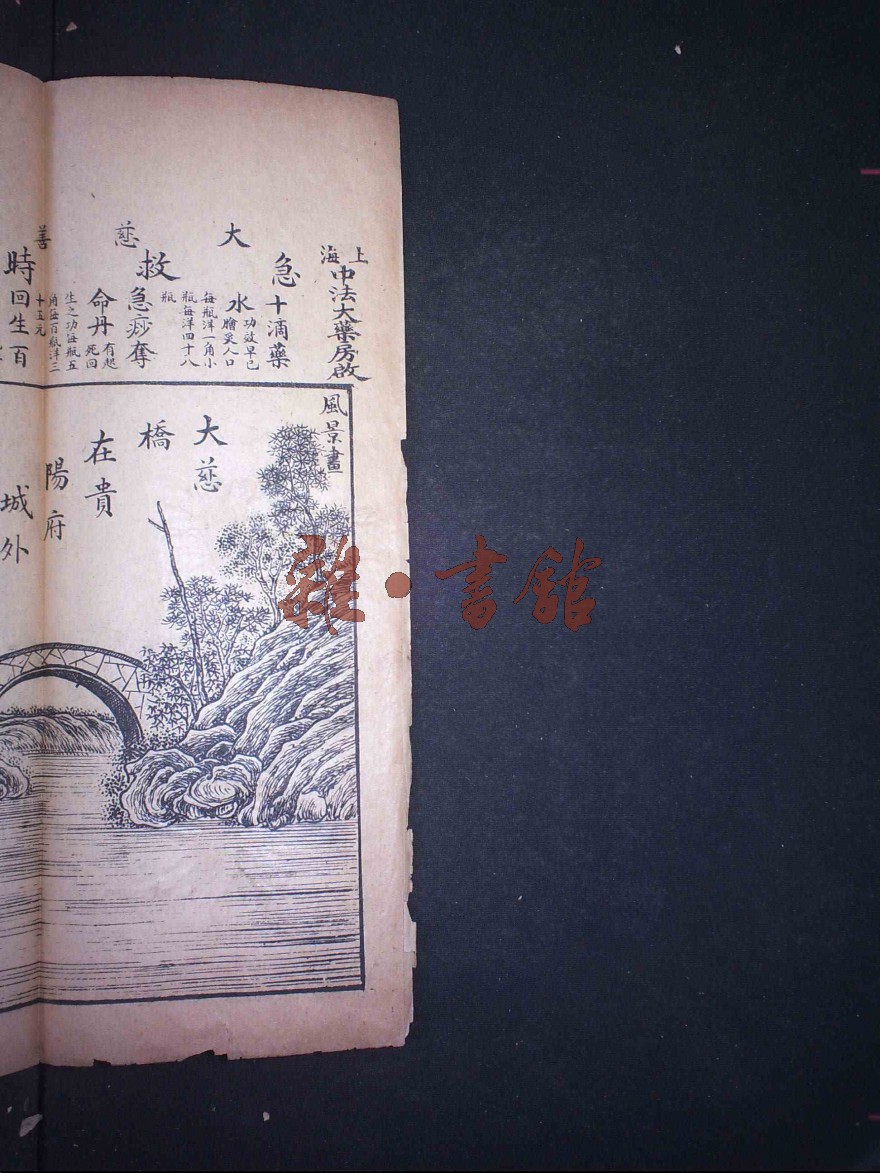 上海
中法大藥房啟
大慈善
急十滴藥
水
功效早已
膾炙人口
每瓶洋一角小
瓶每洋四十八
瓶
救急痧奪
命丹
有起
死回
生之功每瓶五
角每百瓶洋三
十五元
時
回生百
風景畫
大慈
橋
在貴
陽府
城外
雜·書館